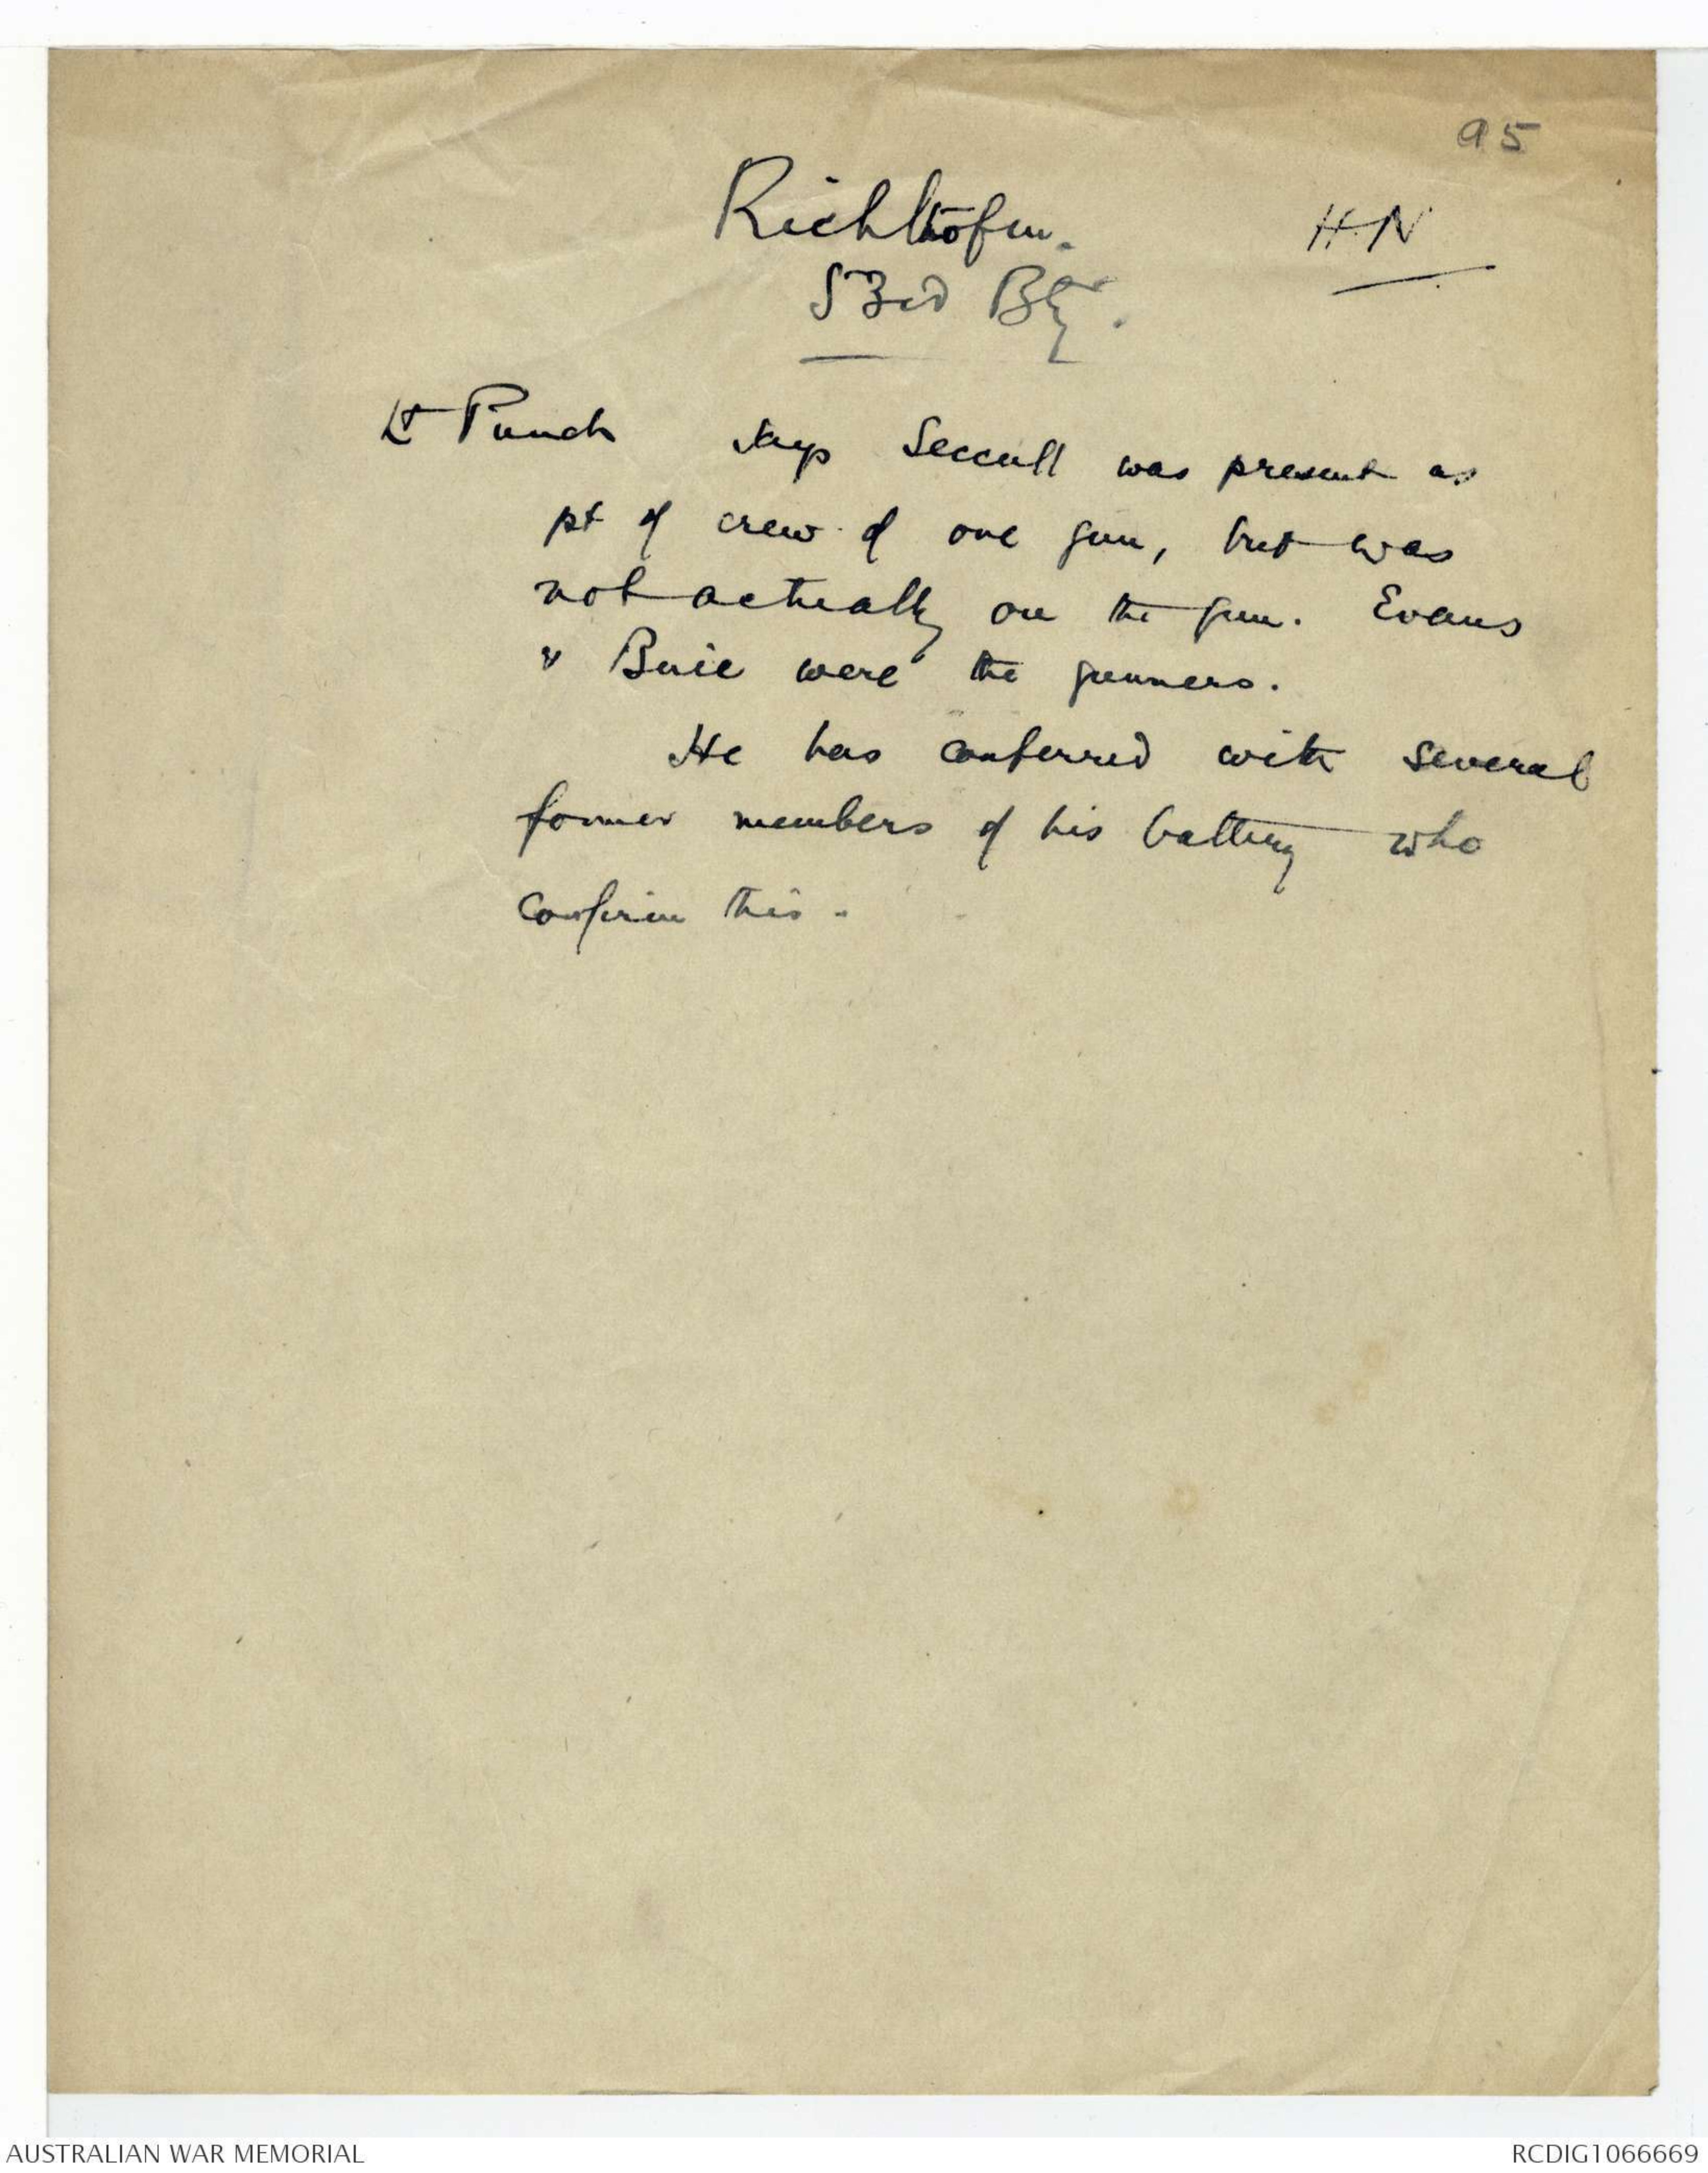 95
Richthofen.
H.N
53rd Bty.
Lt Punch says Seccull was present as
pt of crew of one gun, but was
not actually on the gun. Evans
& Buie were the gunners.
He has conferred with several
former members of his battery who
confirm this.
AUSTRALIAN WAR MEMORIAL
RCDIG1066669